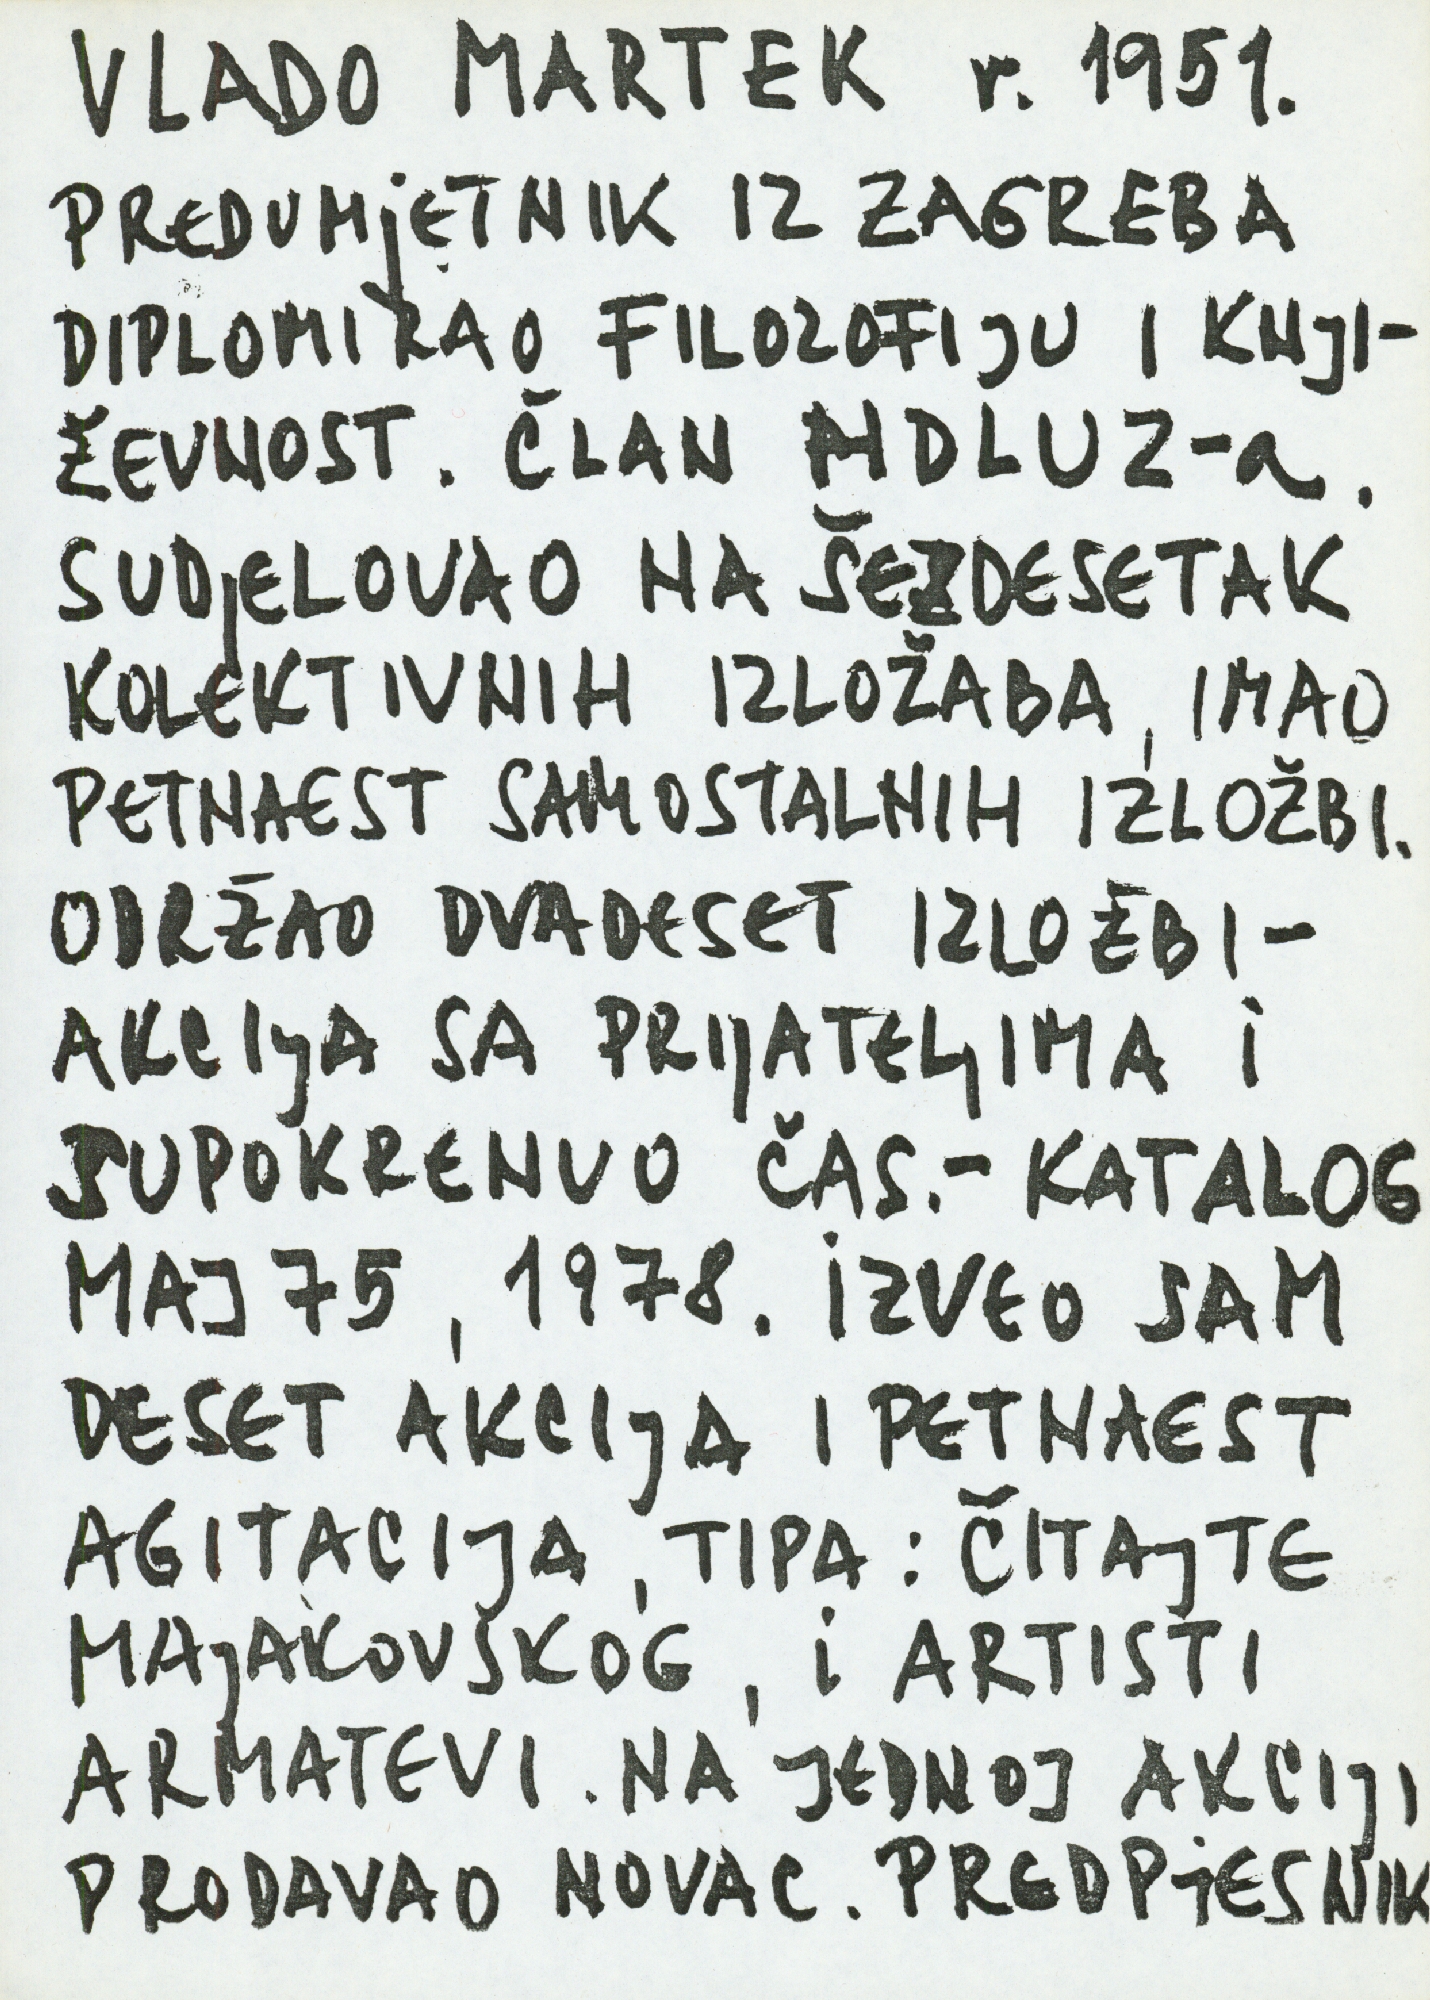 VLADO MARTEK r. 1951.
PREDUMjETNIK IZ ZAGREBA
DIPLOMIRAO FILOZOFIJU I KNJI-
ŽEVNOST. ČLAN HDLUZ-a.
SUDjELOVAO NA ŠEZDESETAK
KOLEKTIVNIH IZLOŽABA, IMAO
PETNAEST SAMOSTALNIH IZLOŽBI.
ODRŽAO DVADESET IZLOŽBI-
AKCIjA SA PRIjATELjIMA i
SUPOKRENUO ČAS.- KATALOG
MAJ 75, 1978. iZVEO SAM
DESET AKCIjA I PETNAEST
AGITACIJA, TIPA: ČITAjTE
MAjAKOVSKOG, i ARTISTI
ARMATEVI. NA JEDNOJ AKCIjI
PRODAVAO NOVAC. PREDPjESNIK